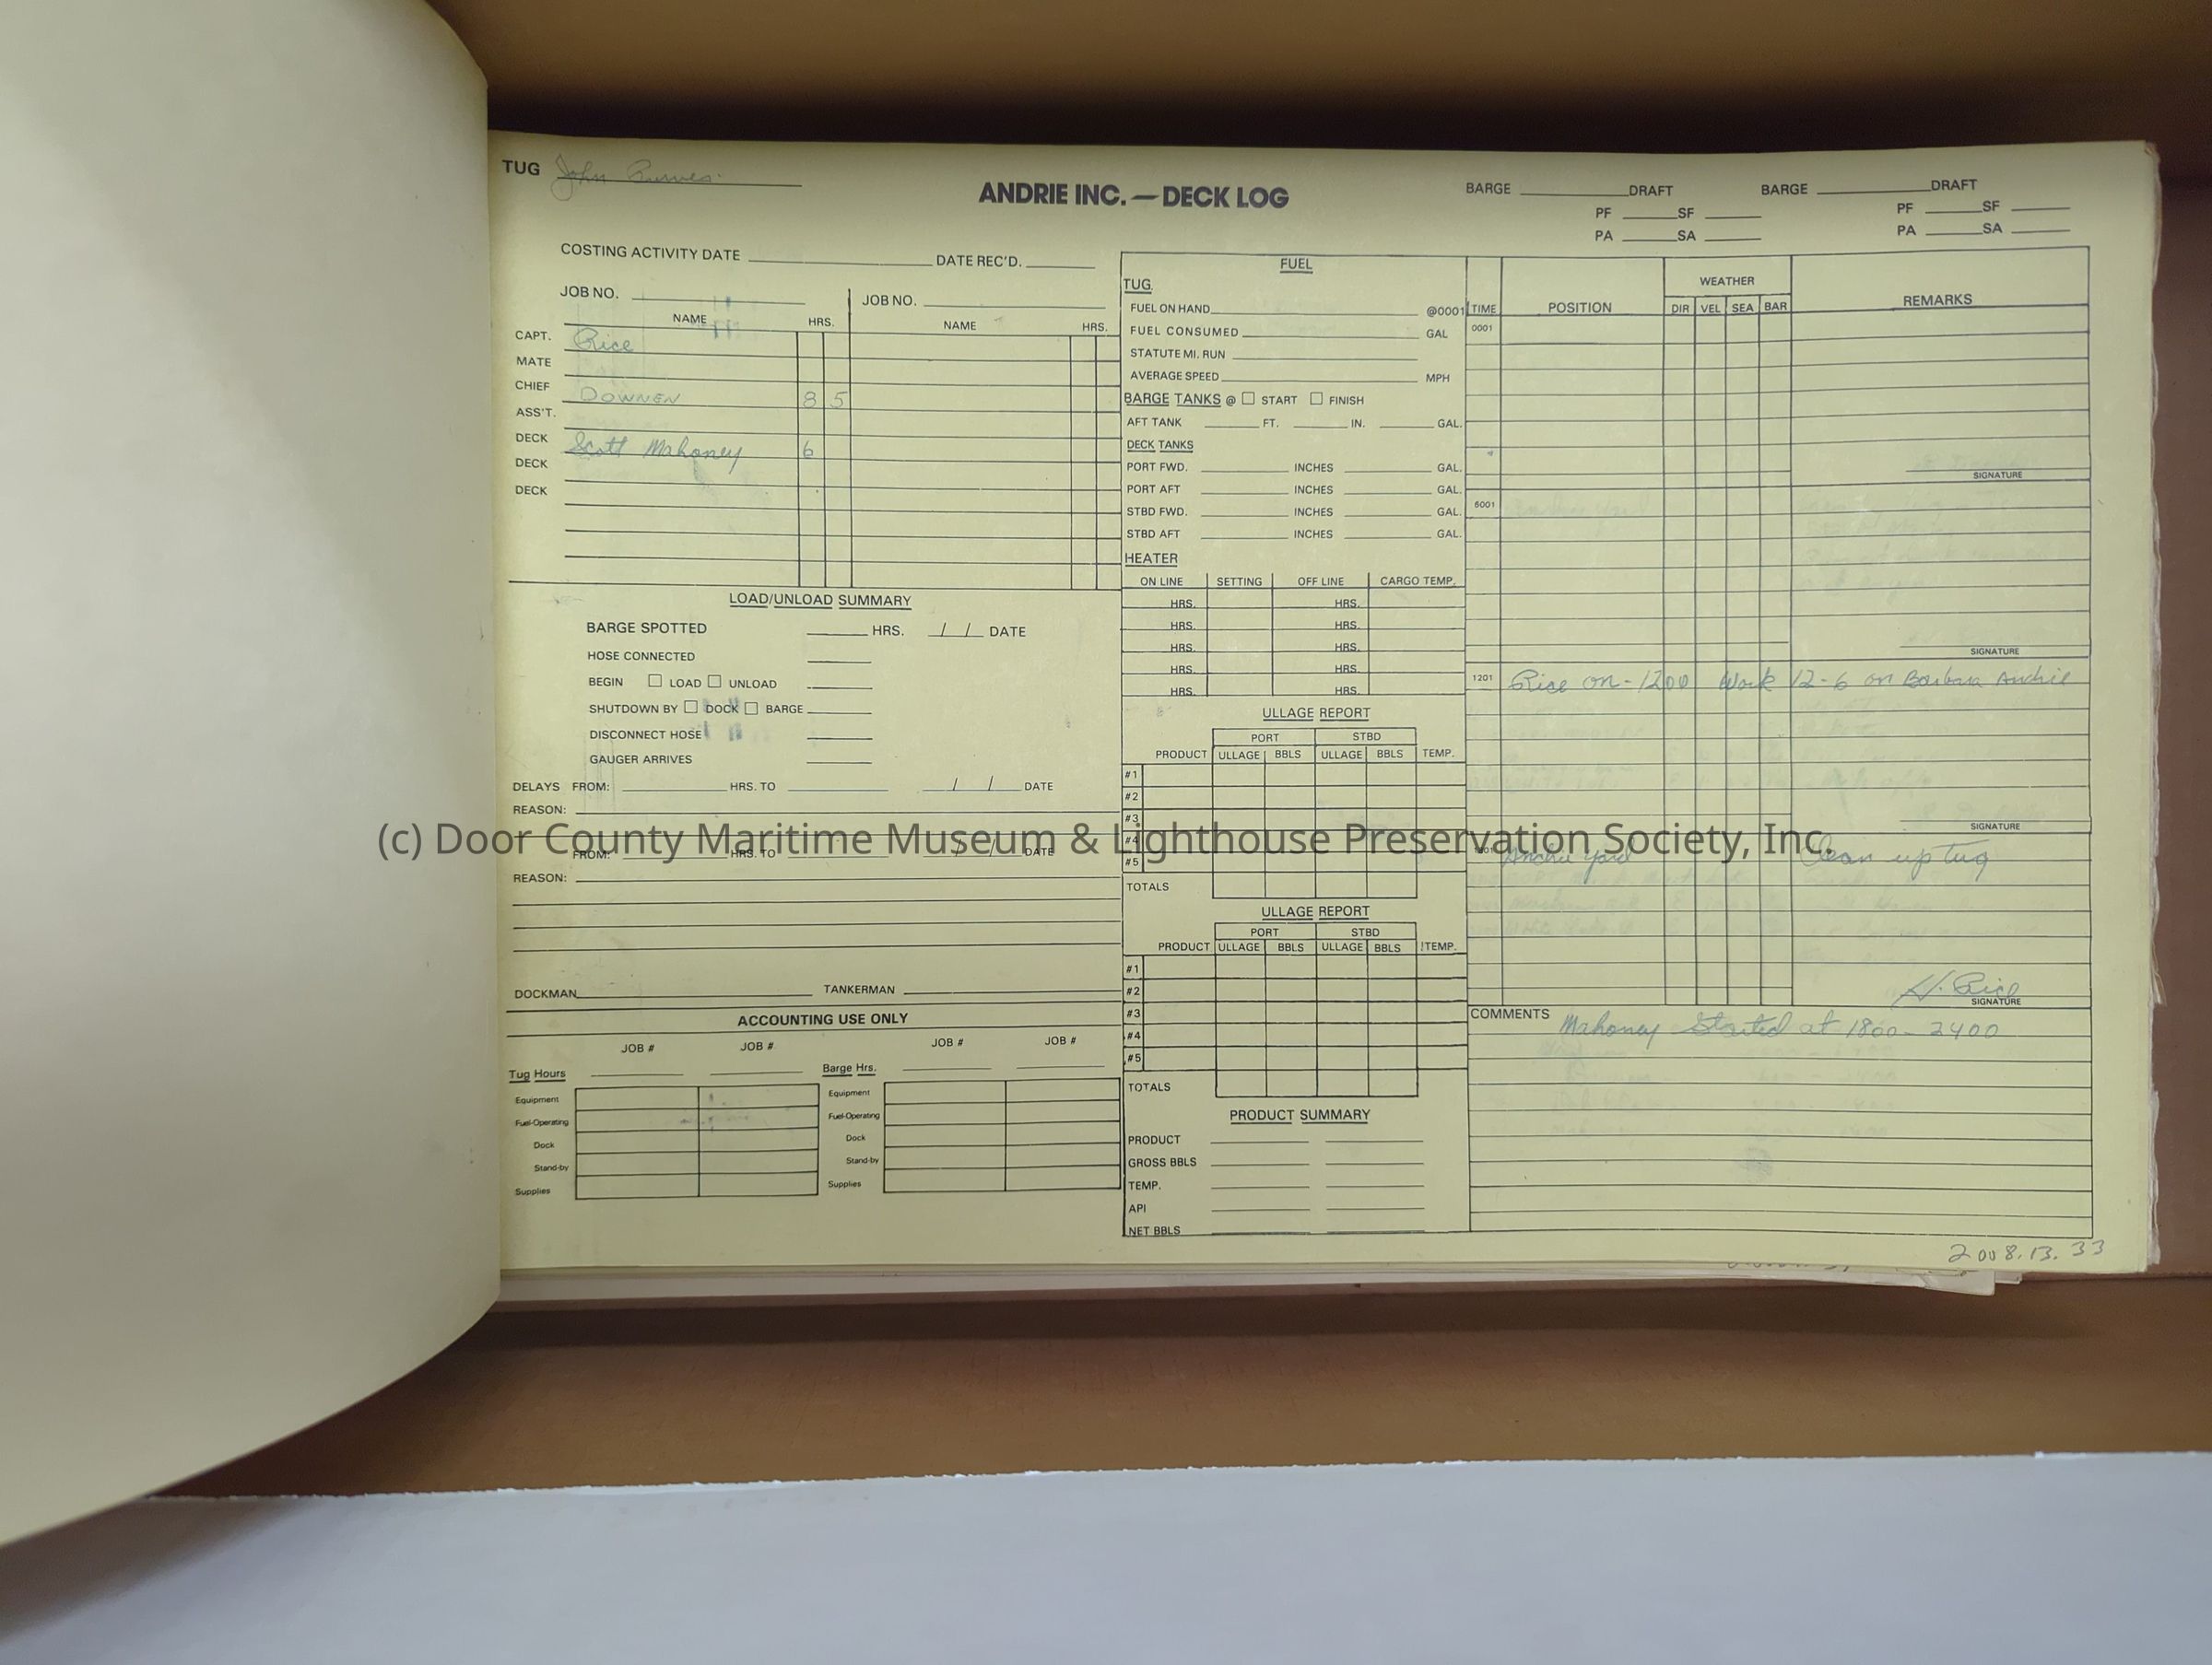 TUG John Purves
ANDRIE INC. — DECK LOG
BARGE ______ DRAFT BARGE ______ DRAFT
PF ____ SF ____ PF ____ SF ____
PA ____ SA ____ PA ____ SA ____
COSTING ACTIVITY DATE ______ DATE REC'D. ______
JOB NO. ______ JOB NO. ______
NAME HRS. NAME HRS.
CAPT. Rice
MATE
CHIEF DOWNEN 8 5
ASS'T.
DECK Scott Mahoney 6
DECK
DECK
LOAD/UNLOAD SUMMARY
BARGE SPOTTED ____ HRS. / / DATE
HOSE CONNECTED
BEGIN ☐ LOAD ☐ UNLOAD
SHUTDOWN BY ☐ DOCK ☐ BARGE
DISCONNECT HOSE
GAUGER ARRIVES
DELAYS FROM: ____ HRS. TO ____ / / DATE
REASON:
FROM: ____ HRS. TO ____ / / DATE
REASON:
DOCKMAN ______ TANKERMAN ______
ACCOUNTING USE ONLY
JOB # JOB # JOB # JOB #
Tug Hours Barge Hrs.
Equipment Equipment
Fuel-Operating Fuel-Operating
Dock Dock
Stand-by Stand-by
Supplies Supplies
FUEL
TUG
FUEL ON HAND ______ @0001
FUEL CONSUMED ______ GAL
STATUTE MI. RUN
AVERAGE SPEED ______ MPH
BARGE TANKS @ ☐ START ☐ FINISH
AFT TANK ____ FT. ____ IN. ____ GAL.
DECK TANKS
PORT FWD. ____ INCHES ____ GAL.
PORT AFT ____ INCHES ____ GAL.
STBD FWD. ____ INCHES ____ GAL.
STBD AFT ____ INCHES ____ GAL.
HEATER
ON LINE SETTING OFF LINE CARGO TEMP.
HRS. HRS.
HRS. HRS.
HRS. HRS.
HRS. HRS.
HRS. HRS.
ULLAGE REPORT
PORT STBD
PRODUCT ULLAGE BBLS ULLAGE BBLS TEMP.
#1
#2
#3
#4
#5
TOTALS
ULLAGE REPORT
PORT STBD
PRODUCT ULLAGE BBLS ULLAGE BBLS TEMP.
#1
#2
#3
#4
#5
TOTALS
PRODUCT SUMMARY
PRODUCT
GROSS BBLS
TEMP.
API
NET BBLS
WEATHER
TIME POSITION DIR VEL SEA BAR REMARKS
0001
SIGNATURE
6001
SIGNATURE
1201 Rice on - 1200 Work 12-6 on Barbara Andrie
SIGNATURE
Andrie Yard Clean up tug
H. Rice
SIGNATURE
COMMENTS Mahoney Started at 1800 - 2400
2008.13.33
(c) Door County Maritime Museum & Lighthouse Preservation Society, Inc.